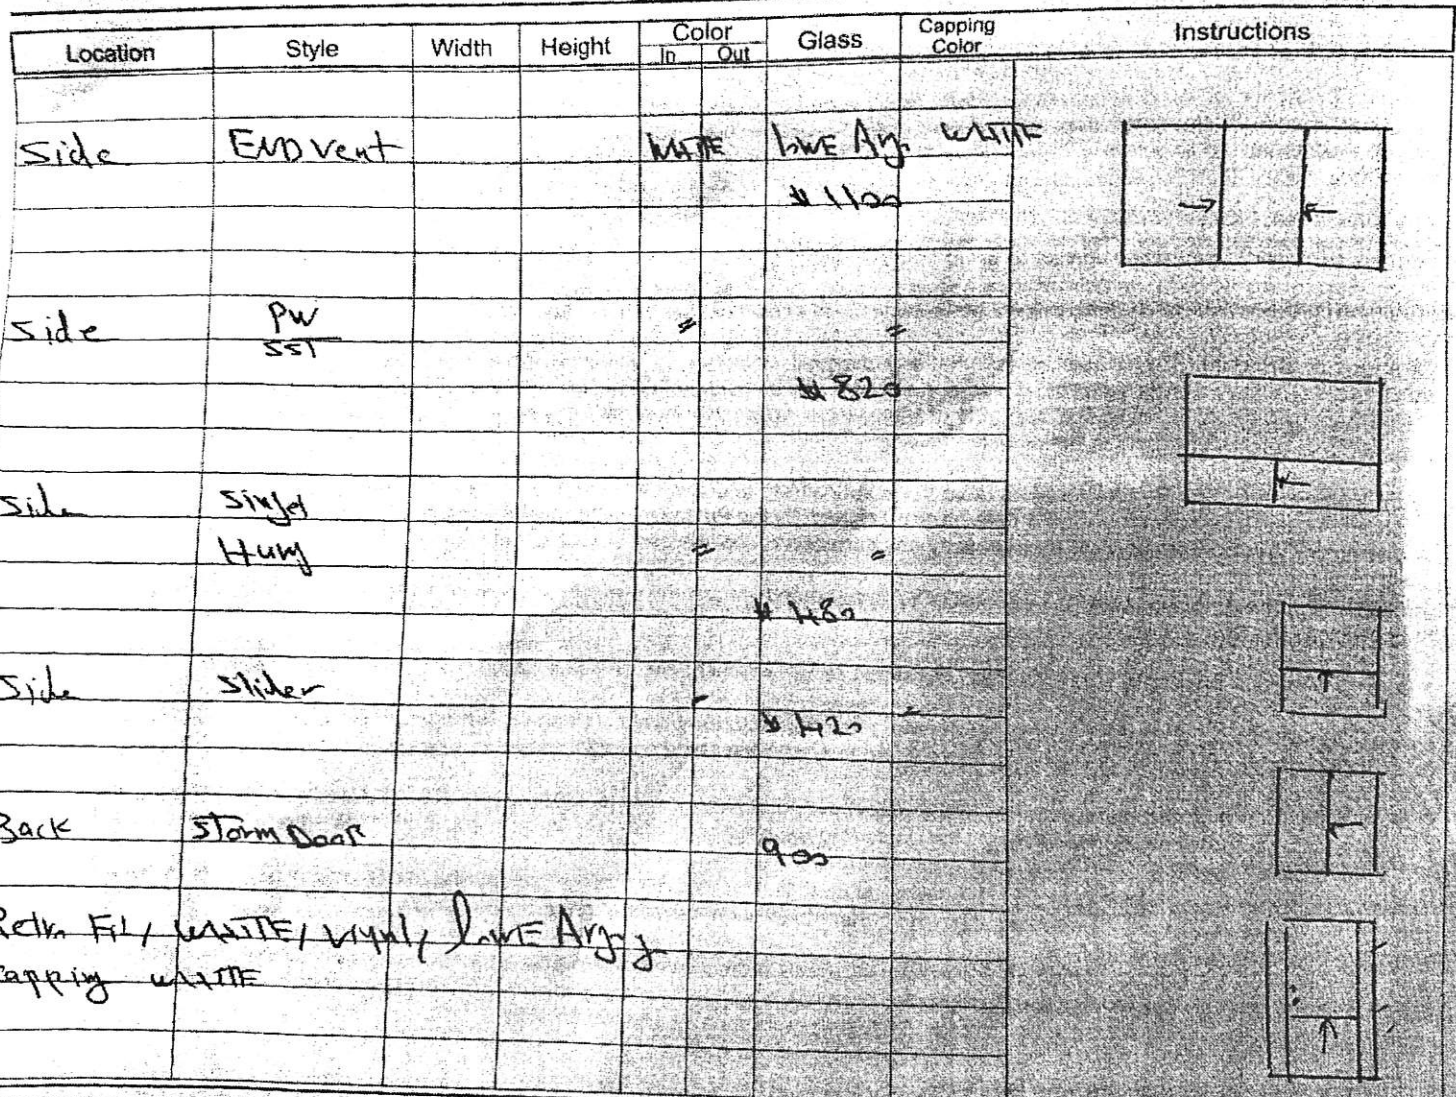 Location Style Width Height Color In Out Glass Capping Color Instructions
Side END vent WHITE LowE Arg. WHITE
$1100
Side PW
SST
" "
$820
Side Singel
Hung " "
$480
Side Slider
$420
Back Storm Door 900
Retro Fit, WHITE, Vynl, LowE Arg.
Capping WHITE